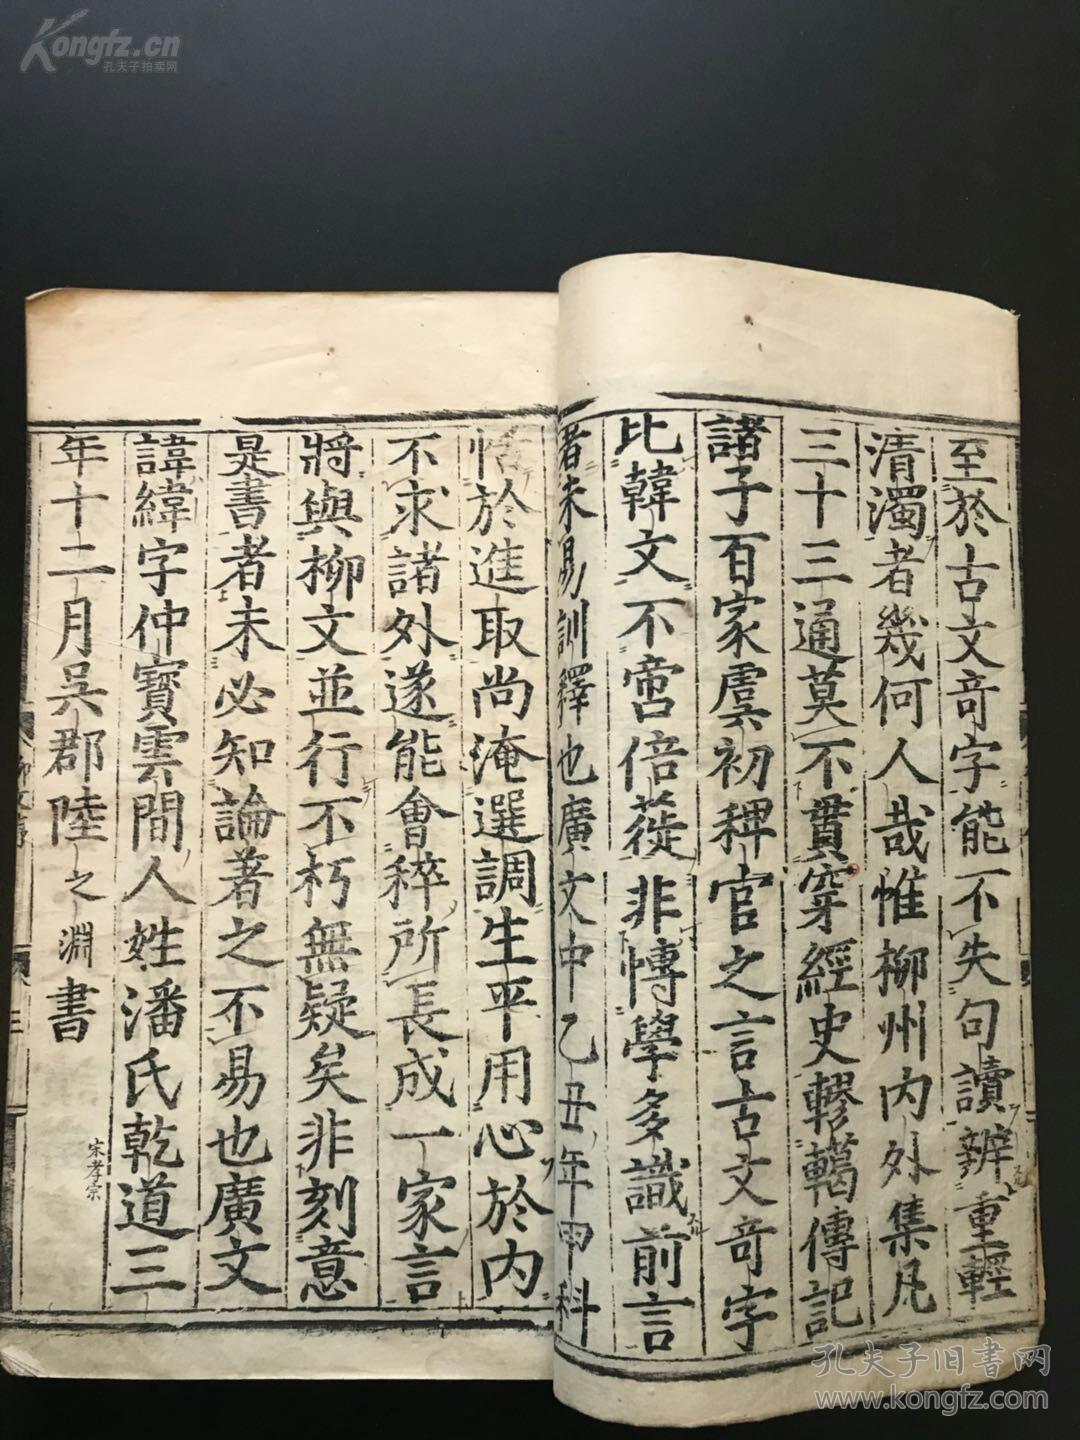 至於古文奇字能不失句讀辨重輕
清濁者幾何人哉惟柳州內外集凡
三十三通莫不貫穿經史轇轕傳記
諸子百家虞初稗官之言古文奇字
比韓文不啻倍蓰非博學多識前言
者未易訓釋也廣文中乙丑年甲科
恬於進取尚淹選調生平用心於內
不求諸外遂能會稡所長成一家言
將與柳文並行不朽無疑矣非刻意
是書者未必知論著之不易也廣文
諱緯字仲寶雲間人姓潘氏乾道三
宋孝宗
年十二月吳郡陸之淵書
Kongfz.cn
孔夫子拍卖网
孔夫子旧书网
www.kongfz.com